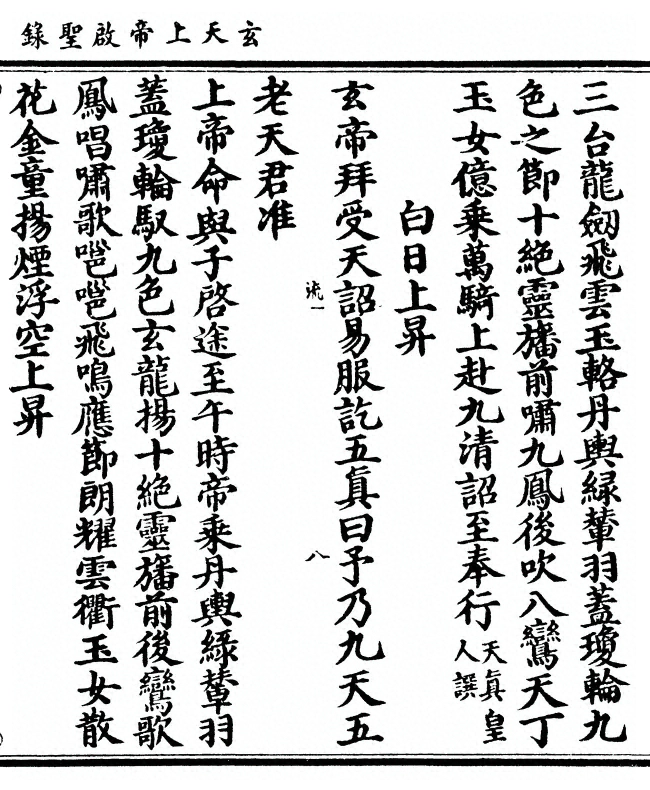 玄天上帝啟聖錄
三台龍劒飛雲玉輅丹輿緑輦羽蓋瓊輪九
色之節十絶靈旛前嘯九鳳後吹八鸞天丁
玉女億乘萬騎上赴九清詔至奉行天真皇
人譔
白日上昇
玄帝拜受天詔易服訖五真曰予乃九天五
流一
八
老天君准
上帝命與子啓途至午時帝乘丹輿緑輦羽
蓋瓊輪馭九色玄龍揚十絶靈旛前後鸞歌
鳳唱嘯歌嗈嗈飛鳴應節朗耀雲衢玉女散
花金童揚煙浮空上昇